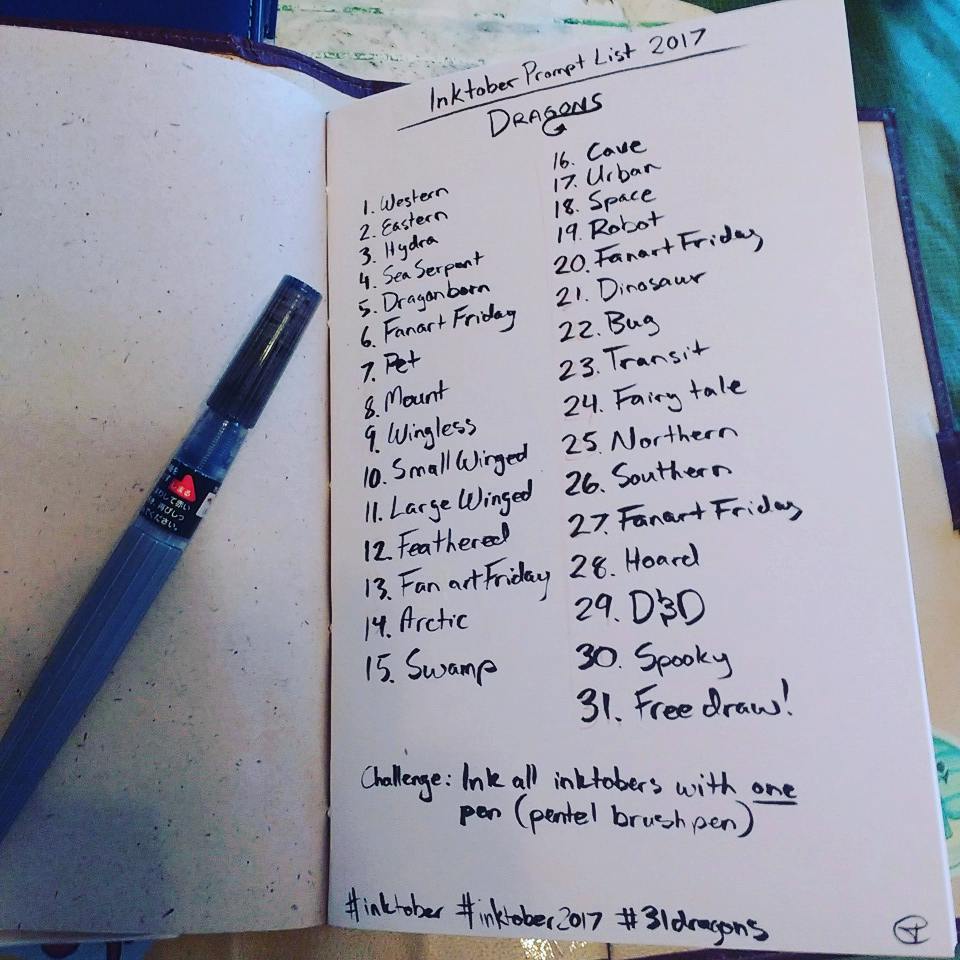 Inktober Prompt List 2017
DRAGONS
1. Western
2. Eastern
3. Hydra
4. Sea Serpent
5. Dragonborn
6. Fanart Friday
7. Pet
8. Mount
9. Wingless
10. Small Winged
11. Large Winged
12. Feathered
13. Fan art Friday
14. Arctic
15. Swamp
16. Cave
17. Urban
18. Space
19. Robot
20. Fanart Friday
21. Dinosaur
22. Bug
23. Transit
24. Fairy tale
25. Northern
26. Southern
27. Fanart Friday
28. Hoard
29. D&D
30. Spooky
31. Free draw!
Challenge: Ink all inktobers with one
pen (pentel brush pen)
#inktober #inktober2017 #31dragons
しまる
ください。